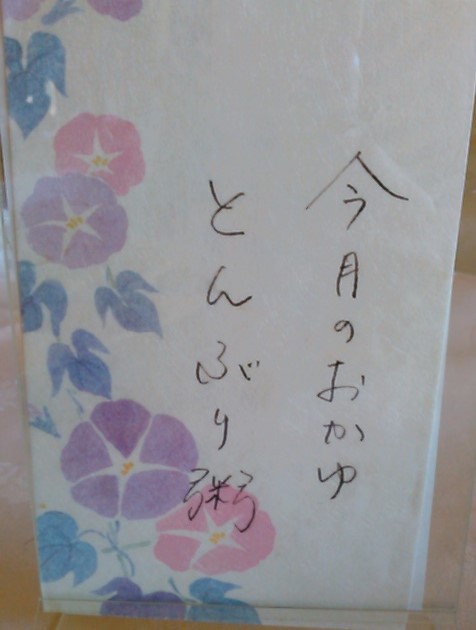 今月のおかゆ
とんぶり粥